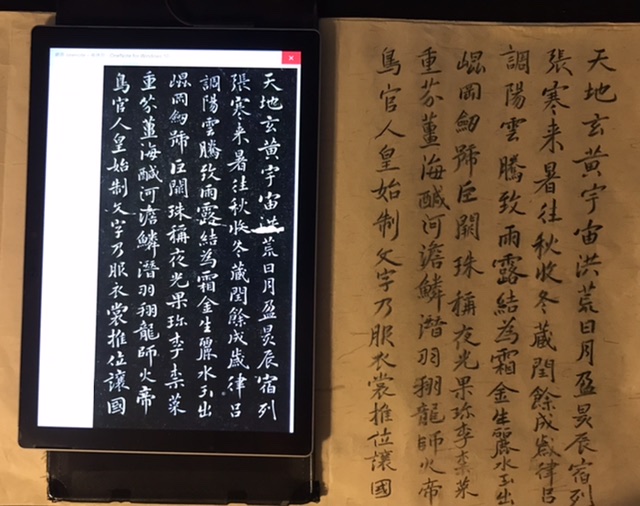 天地玄黄宇宙洪荒日月盈昃辰宿列
張寒来暑往秋收冬蔵閏餘成歲律呂
調陽雲騰致雨露結為霜金生麗水玉出
崐岡劒號巨闕珠稱夜光果珎李柰菜
重芥薑海醎河澹鱗潛羽翔龍師火帝
鳥官人皇始制文字乃服衣裳推位讓國
天地玄黄宇宙洪荒日月盈昃辰宿列
張寒来暑往秋收冬蔵閏餘成歲律呂
調陽雲騰致雨露結為霜金生麗水玉出
崐岡劒號巨闕珠稱夜光果珎李柰菜
重芥薑海醎河澹鱗潛羽翔龍師火帝
鳥官人皇始制文字乃服衣裳推位讓國